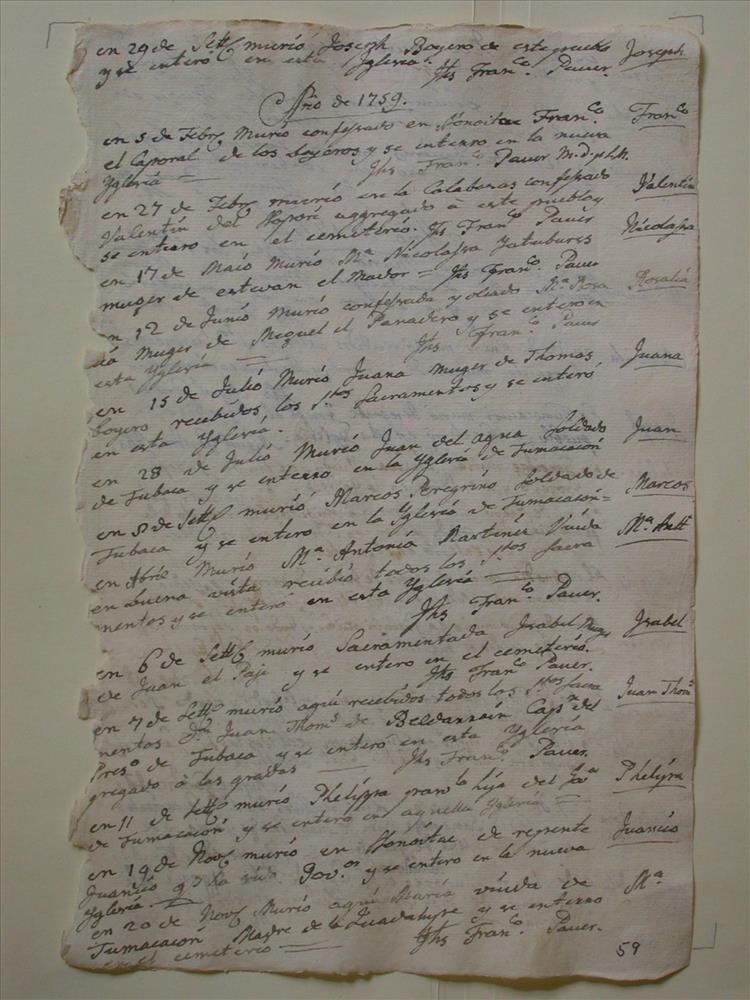 en 29 de Sett.e murió Joseph Boyero de este pueblo Joseph
y se enteró en esta Yglesia. Jhs Fran.co Pauer.
Año de 1759.
en 5 de Febr.o Murio confessado en Fran.co Fran.co
el Caporal de los boyeros y se enterro en la nueva
Yglesia = Jhs Fran.co Pauer
en 27 de Febr.o murió en la Calabasas confessado Valentin
Valentin del aggregado à este pueblo y
se entiero en el cementerio. Jhs Fran.co Pauer Nicolassa
en 17 de Maio Murió M.a Nicolassa
muger de estevan el Mador = Jhs Fran.co Pauer
en 12 de Junio Murió confessada y oleado M.a Rosa Rosalia
lia Muger de Miguel el Panadero y se entero en
esta Yglesia = Jhs Fran.co Pauer
en 15 de Julio Murió Juana muger de Thomas Juana
boyero recebidos los S.tos Sacramentos y se enteró
en esta Yglesia.
en 28 de Julio Murió Juan del agua Soldado Juan
de Tubaca y se enterro en la Yglesia de Tumacacori
en 8 de Sett.e murió Marcos Peregrino Soldado de Marcos
Tubaca y se entero en la Yglesia de Tumacacori =
en Abril Murió M.a Antonia Martines Viuda M.a Antt
en buena vista recibio todos los S.tos Sacra
mentos y se enteró en esta Yglesia =
Jhs Fran.co Pauer.
en 6 de Sett.e murió Sacramentada Isabel Muger Isabel
de Juan el Paje y se entero en el cementerio.
Jhs Fran.co Pauer.
en 7 de Sett.e murió aquí recebidos todos los S.tos Sacra Juan Thom.s
mentos D.n Juan Thom.s de Beldarrain Cap.n del
Pres.o de Tubaca y se enteró en esta Yglesia
gregado à las gradas — Jhs Fran.co Pauer.
en 11 de Sett.e murió Phelippa hija del Gov.or Phelippa
de Tumacacori y se entero en aquella Yglesia =
en 19 de Nov.e murió en de repente Juancio
Juancio q.e ha sido Gov.or y se entero en la nueva
Yglesia. =
en 20 de Nov.e Murió aquí Maria viuda de M.a
Tumacacori Madre de la Guadalupe y se enterro
en el cementerio = Jhs Fran.co Pauer.
59